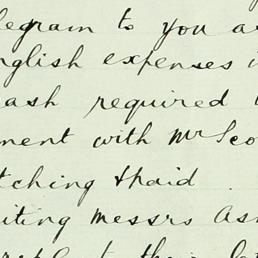 legram to you a
nglish expenses i
ash required
ment with Mr Sco
tching & paid .
iting Messrs As